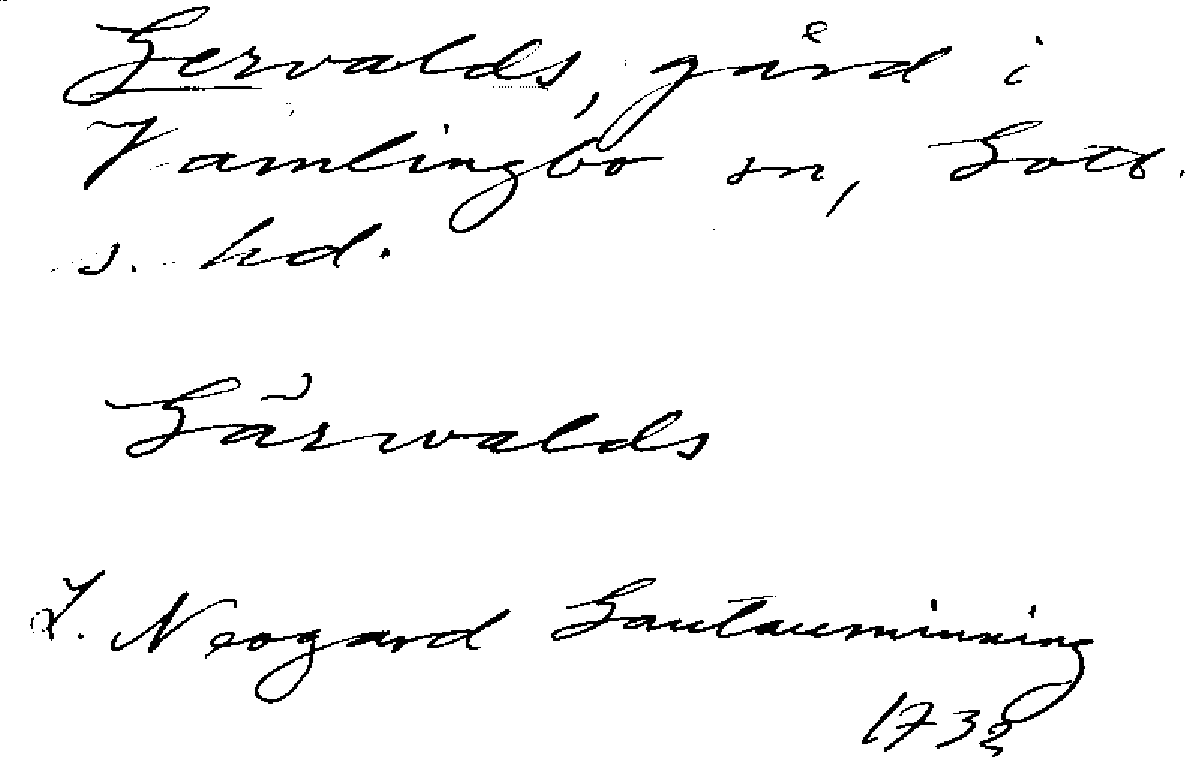 Gervalds, gård i
Vamlingbo sn, Gotl.
s. hd.
Gärvalds
J. Neogard Gautauminning
1732